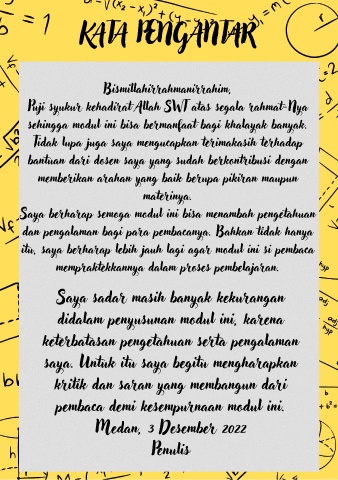 KATA PENGANTAR
Bismillahirrahmanirrahim,
Puji syukur kehadirat Allah SWT atas segala rahmat-Nya
sehingga modul ini bisa bermanfaat bagi khalayak banyak.
Tidak lupa juga saya mengucapkan terimakasih terhadap
bantuan dari dosen saya yang sudah berkontribusi dengan
memberikan arahan yang baik berupa pikiran maupun
materinya.
Saya berharap semoga modul ini bisa menambah pengetahuan
dan pengalaman bagi para pembacanya. Bahkan tidak hanya
itu, saya berharap lebih jauh lagi agar modul ini si pembaca
mempraktekkannya dalam proses pembelajaran.
Saya sadar masih banyak kekurangan
didalam penyusunan modul ini, karena
keterbatasan pengetahuan serta pengalaman
saya. Untuk itu saya begitu mengharapkan
kritik dan saran yang membangun dari
pembaca demi kesempurnaan modul ini.
Medan, 3 Desember 2022
Penulis